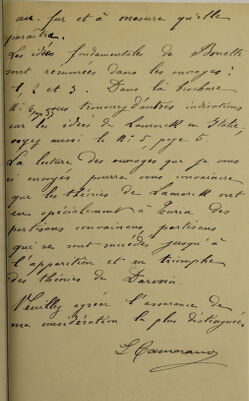 au fur et à mesure qu'elle
paraîtra.
Les idées fondamentales de Bonelli
sont resumées dans les ouvrages:
1, 2 et 3. Dans la brochure
N: 4, page 37 vous trouverez d'autres indications
sur les idées de Lamarck en Italie,
voyez aussi le N: 5, page 5.
La lecture des ouvrages que je vous
ai envoyés pourra vous convaincre
que les théories de Lamarck ont
eu spécialement à Turin des
partisans convaincus, partisans
qui se sont succédés jusqu'à
l'apparition et au triomphe
des théories de Darwin.
Veuillez agréer l'assurance de
ma considération la plus distinguée.
L. Camerano